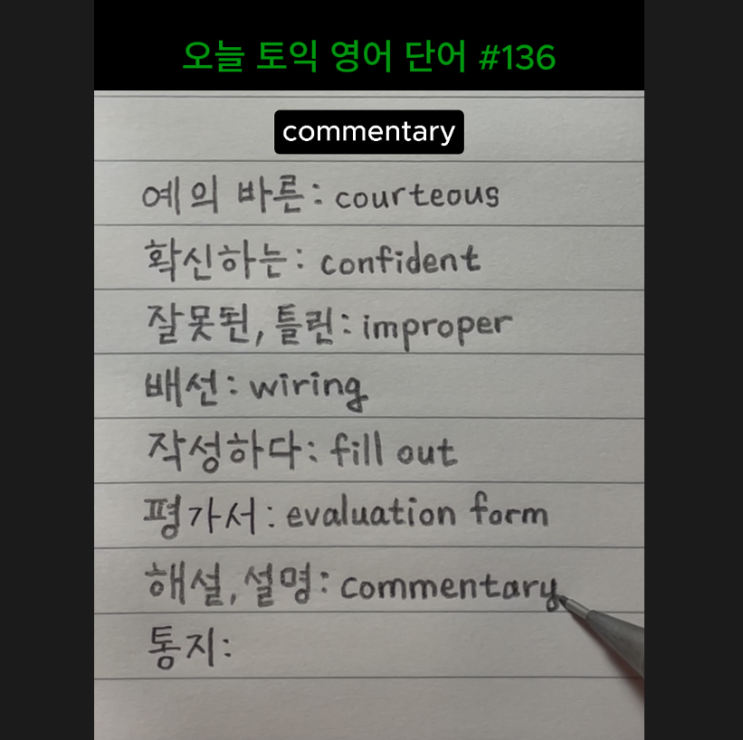 오늘 토익 영어 단어 #136
commentary
예의 바른: courteous
확신하는: confident
잘못된, 틀린: improper
배선: wiring
작성하다: fill out
평가서: evaluation form
해설, 설명: commentary
통지: